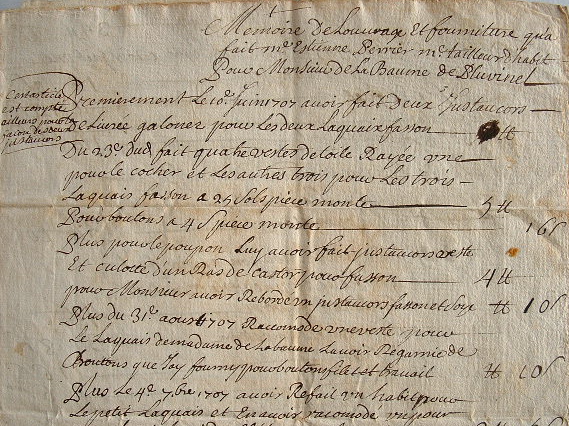 Memoire De Louvrage Et fourniture qua
fait mr Estienne Perrier me tailleur dhabit
Pour Monsieur de La Baume de Pluvinel
Cest article
est compte
ailleurs pour la
facon de deux
justaucors
Premierement Le 10e Juin 1707 avoir fait Deux Justaucors
de Livrée galonez pour Les deux Laquaix fasson tt
Du 23e dud fait quatre vestes de toile Rayée une
pour le cocher et Les autres trois pour Les trois
Laquais fasson a 25 sols piece monte 5 tt
Pour boutons a 4 s piece monte 16 s
Plus pour le poupon Luy avoir fait justaucors veste
Et culotte dun Ras de Castor pour fasson 4 tt
pour Monsieur avoir Rebordé un justaucors fasson et soye tt 10 s
Plus du 31e aoust 1707 Racomodé une veste pour
Le Laquais de madame de La baume Lavoir Regarnie de
Boutons que Jay fourny pour boutons filet et travail tt 10 s
Plus Le 4e 7bre 1707 avoir Refait un habit pour
Le petit Laquais Et En avoir racomodé un pour